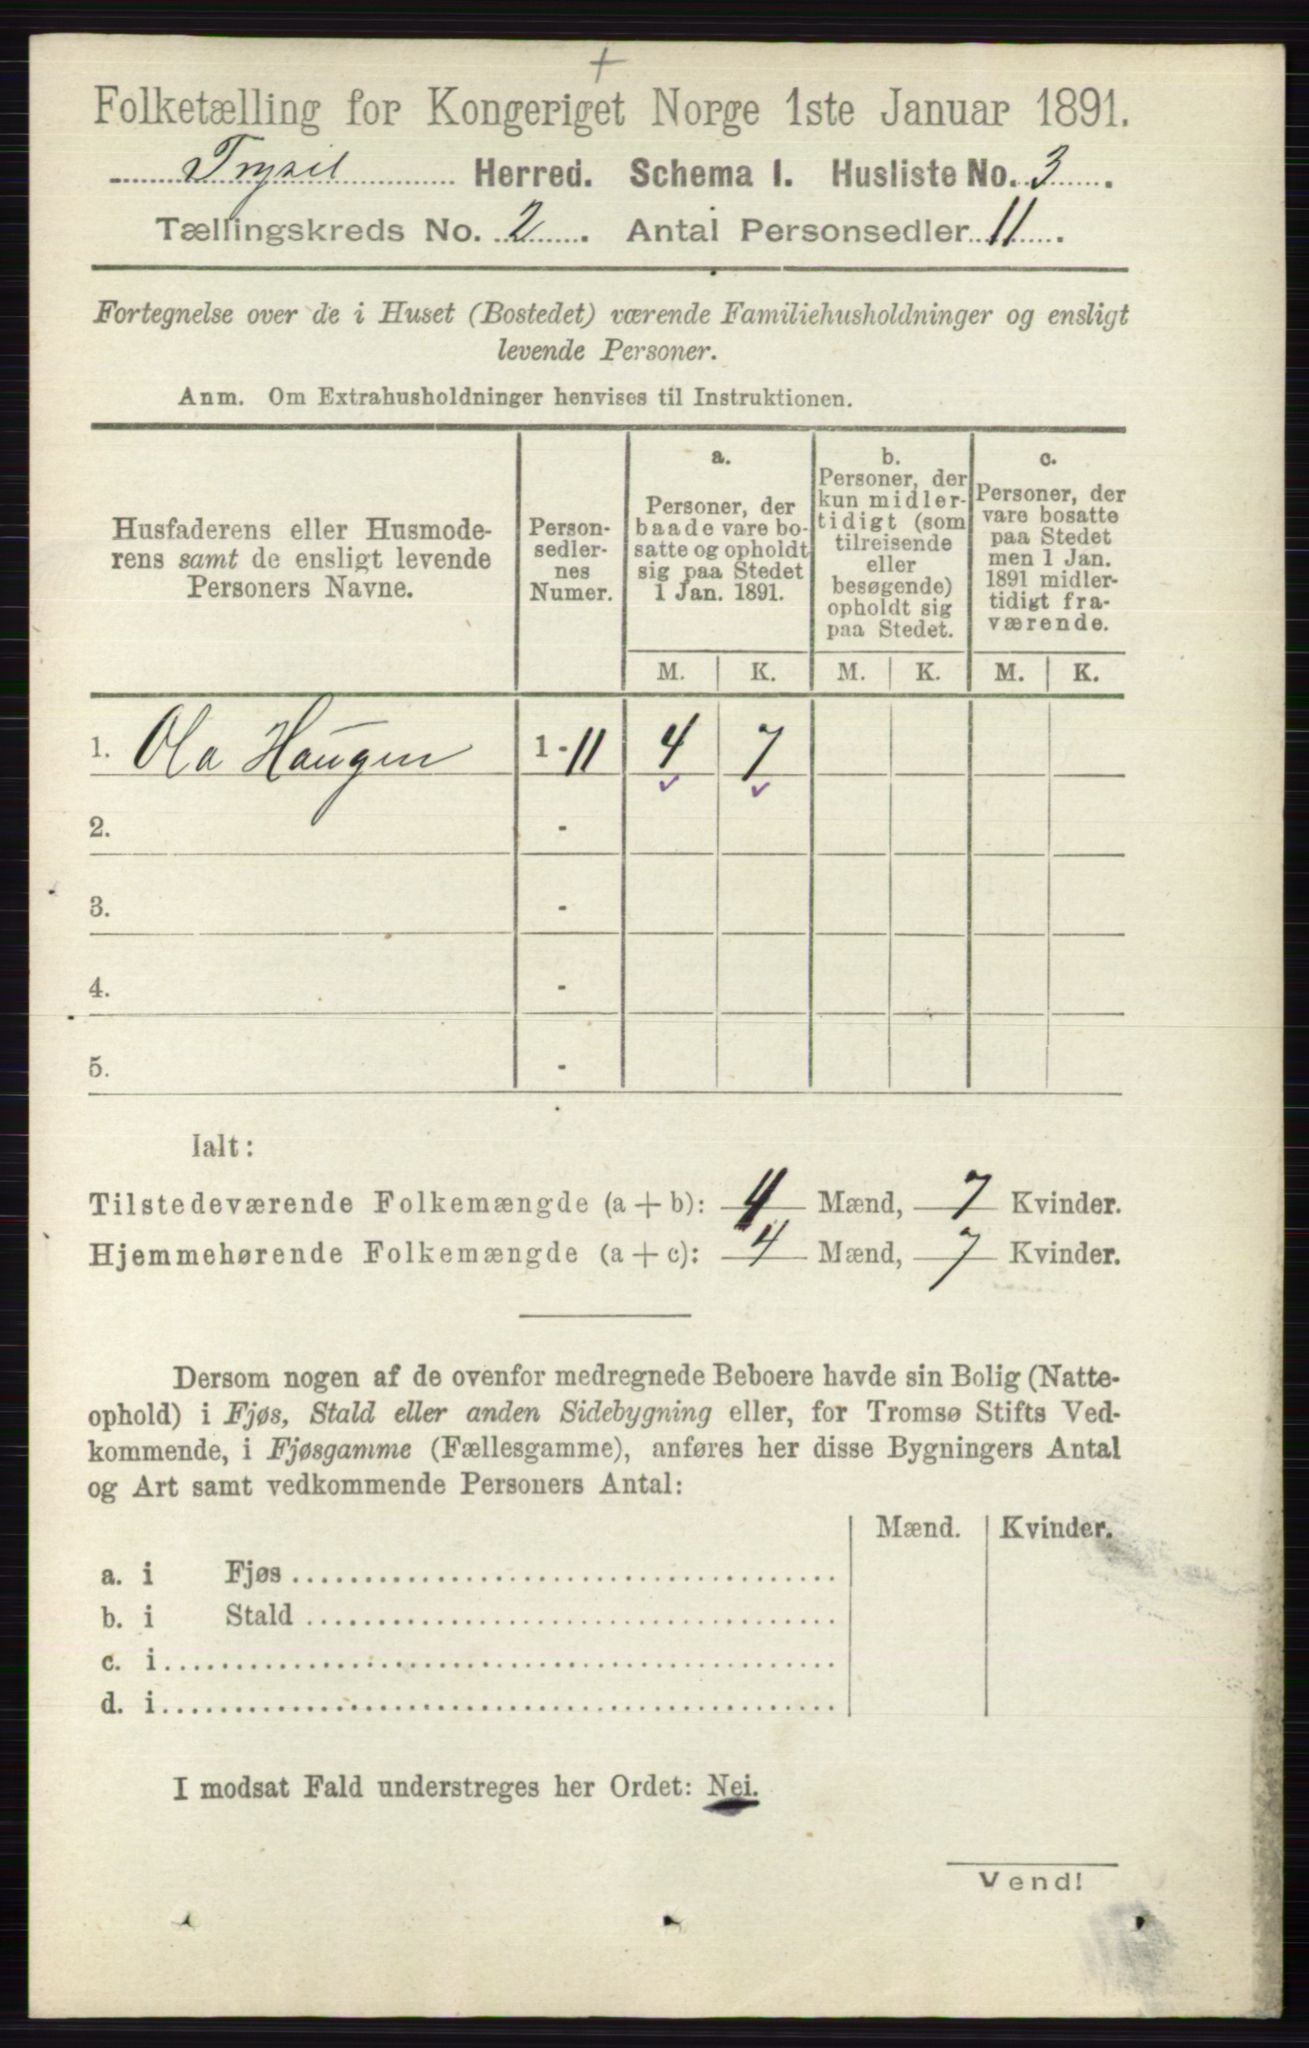 +
Folketælling for Kongeriget Norge 1ste Januar 1891.
Trysil Herred. Schema I. Husliste No. 3.
Tællingskreds No. 2. Antal Personsedler 11.
Fortegnelse over de i Huset (Bostedet) værende Familiehusholdninger og ensligt
levende Personer.
Anm. Om Extrahusholdninger henvises til Instruktionen.
Husfaderens eller Husmode-
rens samt de ensligt levende
Personers Navne.
Person-
sedler-
nes
Numer.
a.
Personer, der
baade vare bo-
satte og opholdt
sig paa Stedet
1 Jan. 1891.
b.
Personer, der
kun midler-
tidigt (som
tilreisende
eller
besøgende)
opholdt sig
paa Stedet.
c.
Personer, der
vare bosatte
paa Stedet
men 1 Jan.
1891 midler-
tidigt fra-
værende.
M. K. M. K. M. K.
1. Ola Haugen 1-11 4 7
2. -
3. -
4. -
5. -
Ialt:
Tilstedeværende Folkemængde (a + b): 4 Mænd, 7 Kvinder.
Hjemmehørende Folkemængde (a + c): 4 Mænd, 7 Kvinder.
Dersom nogen af de ovenfor medregnede Beboere havde sin Bolig (Natte-
ophold) i Fjøs, Stald eller anden Sidebygning eller, for Tromsø Stifts Ved-
kommende, i Fjøsgamme (Fællesgamme), anføres her disse Bygningers Antal
og Art samt vedkommende Personers Antal:
Mænd. Kvinder.
a. i Fjøs
b. i Stald
c. i
d. i
I modsat Fald understreges her Ordet: Nei.
Vend!